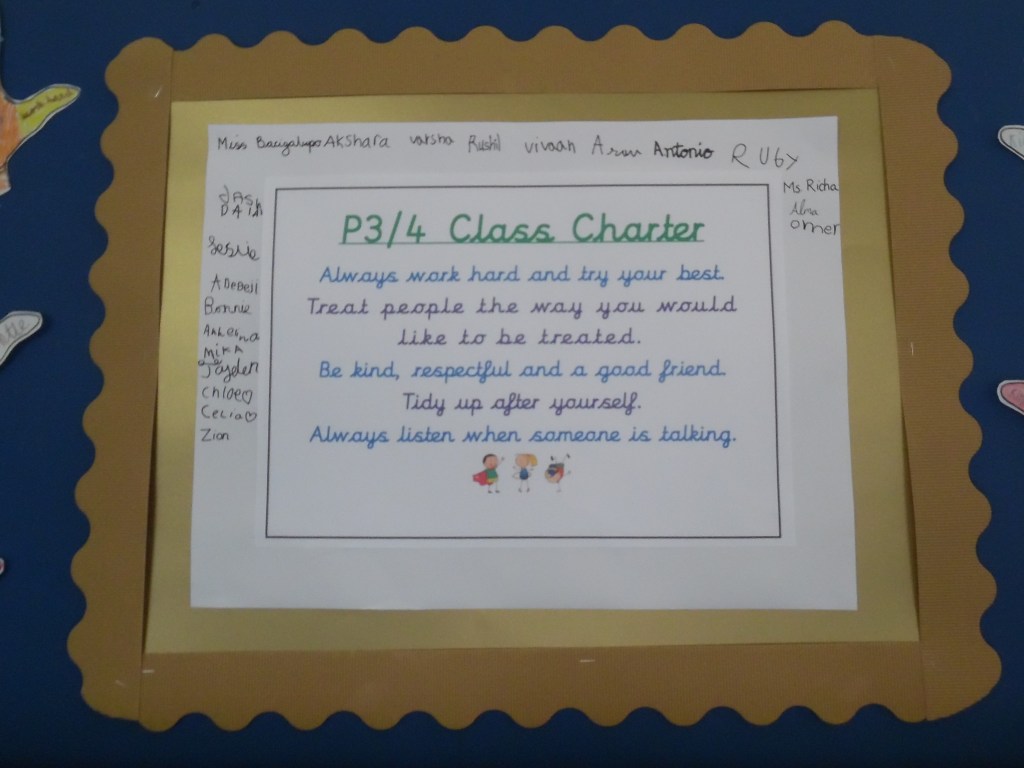 Miss Bacigalupo Akshara varsha Rushil vivaan Arav Antonio RUby
Ms Richa
Alma
omer
Jessie
Adebeji
Bonnie
Mika
Jayden
Chloe♡
Celia♡
Zion
P3/4 Class Charter
Always work hard and try your best.
Treat people the way you would
like to be treated.
Be kind, respectful and a good friend.
Tidy up after yourself.
Always listen when someone is talking.